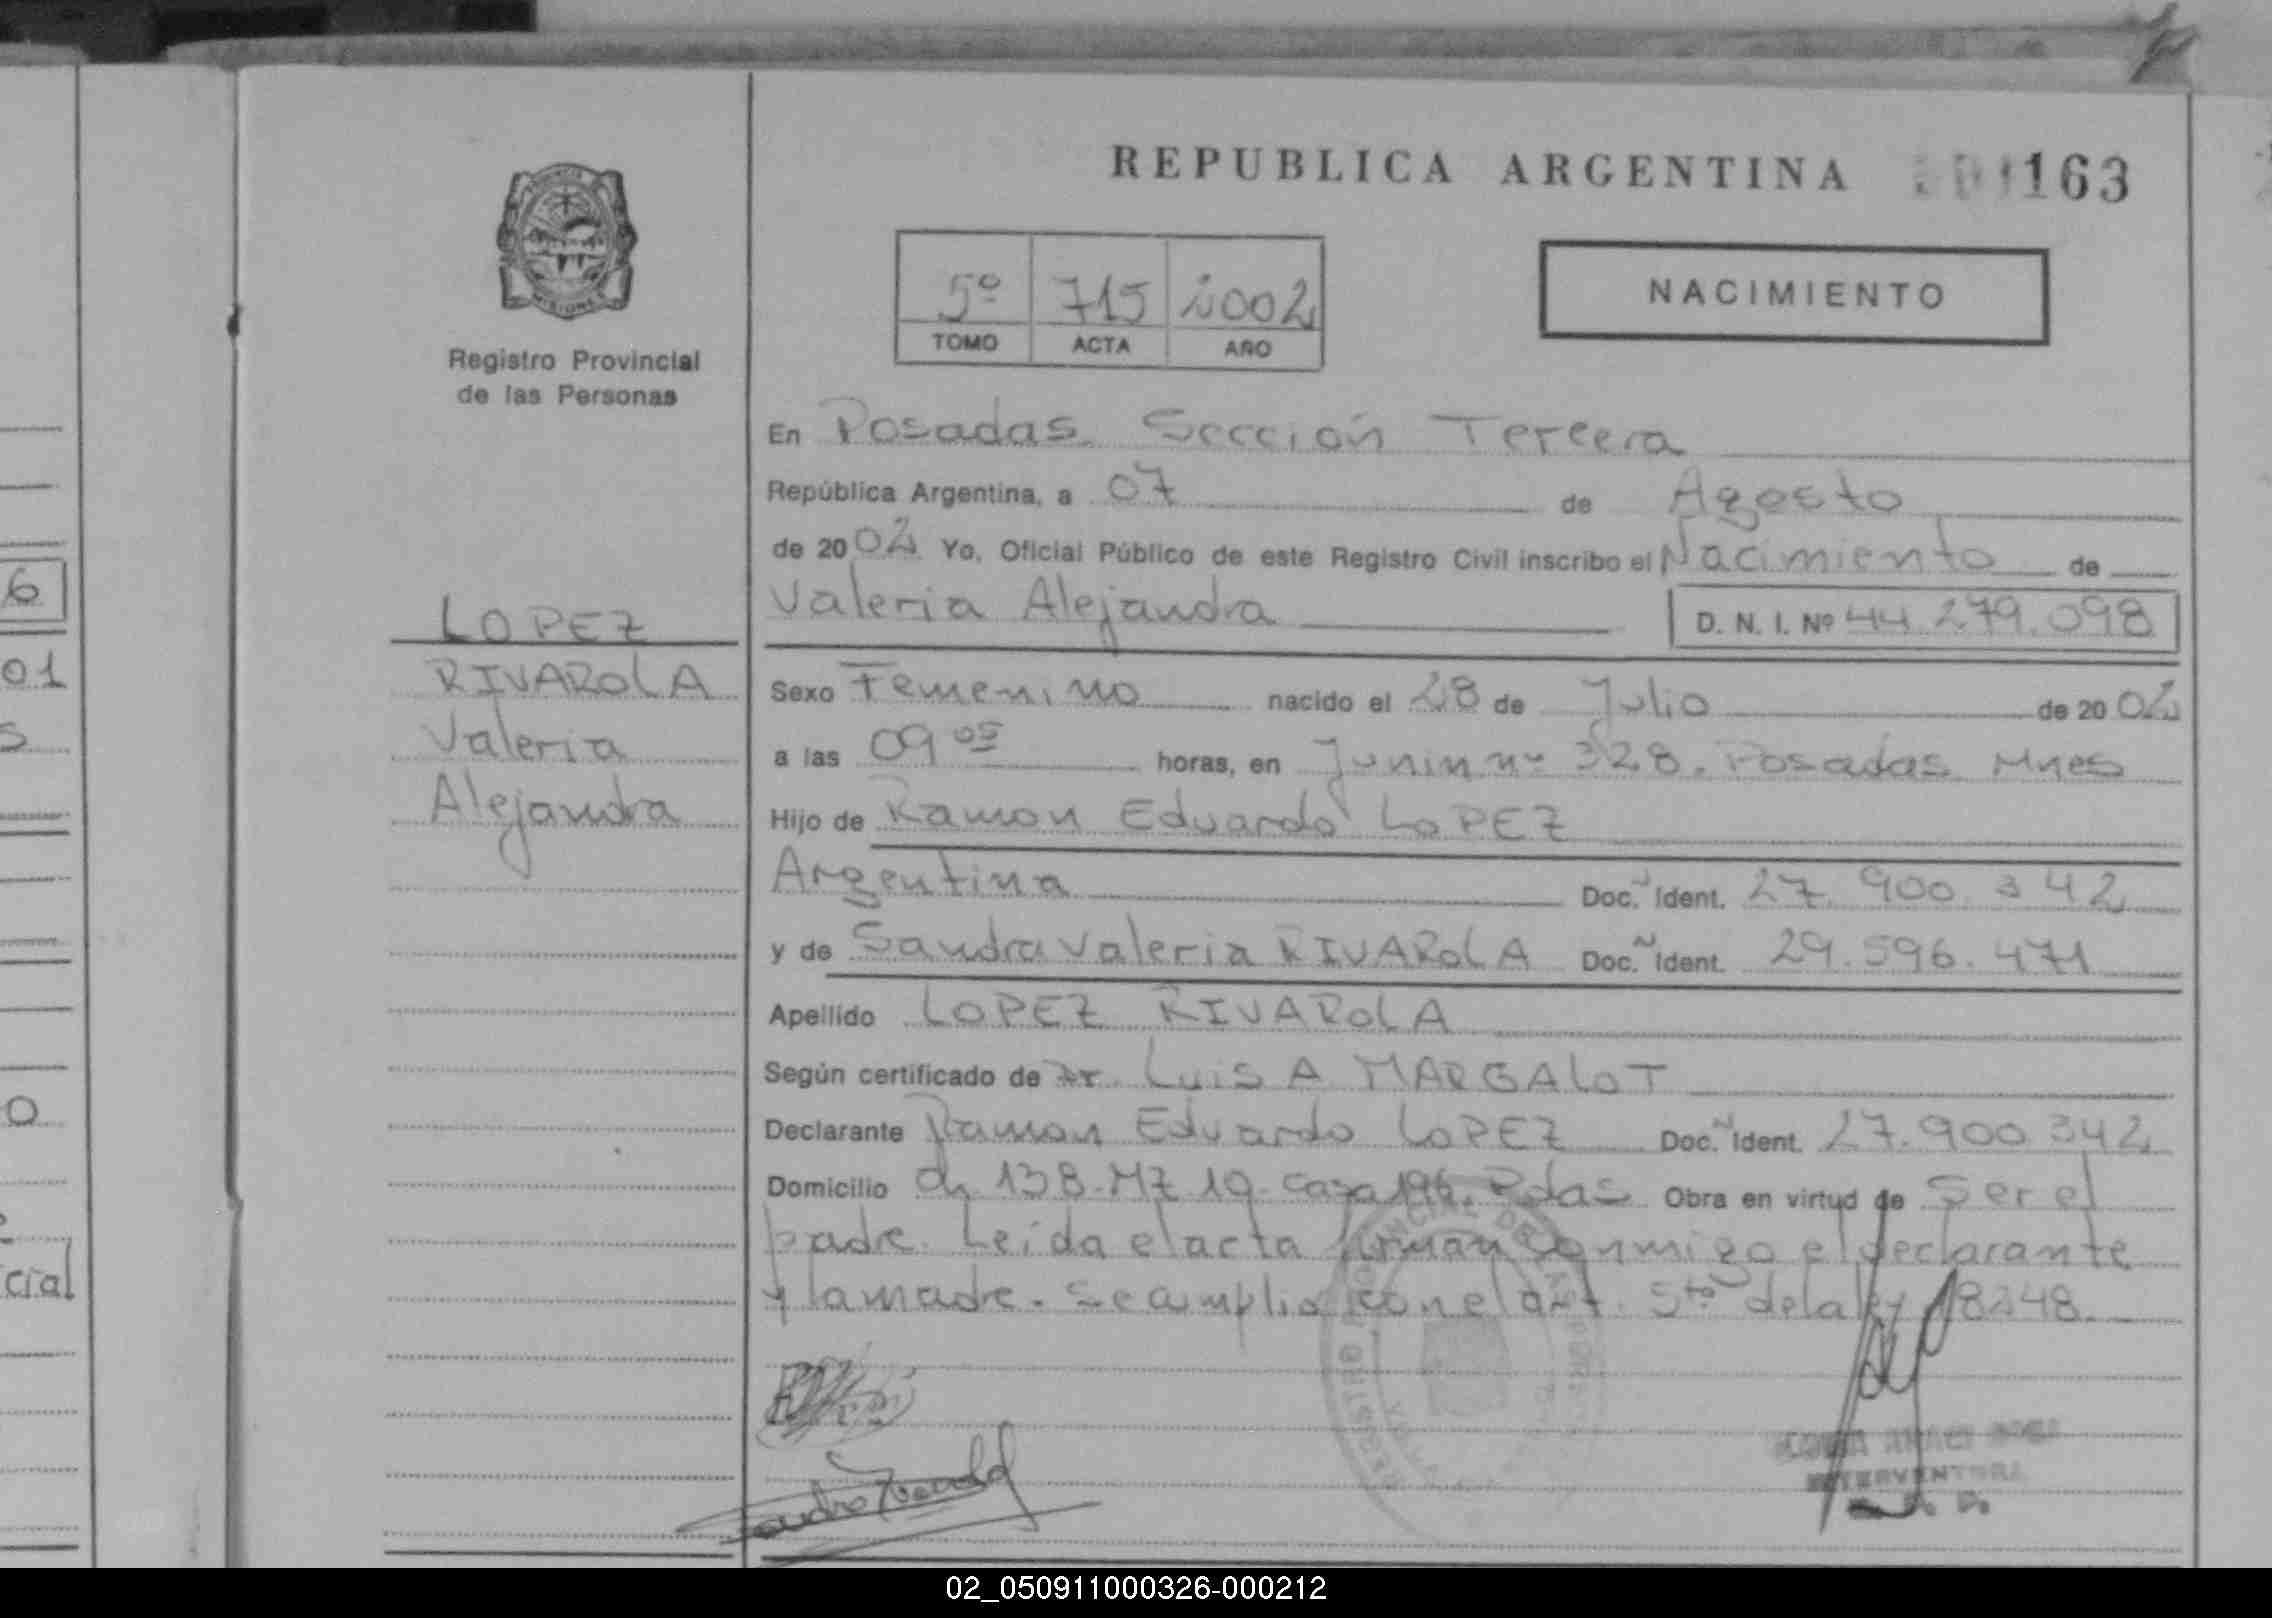 REPUBLICA ARGENTINA 163
5º 715 2002
TOMO ACTA AÑO
NACIMIENTO
PROVINCIA
MISIONES
Registro Provincial
de las Personas
LOPEZ
RIVAROLA
Valeria
Alejandra
En Posadas Sección Tercera
República Argentina, a 07 de Agosto
de 2002 Yo, Oficial Público de este Registro Civil inscribo el Nacimiento de
Valeria Alejandra D. N. I. Nº 44.279.098
Sexo Femenino nacido el 28 de Julio de 2002
a las 09 05 horas, en Junin nº 328. Posadas Mnes
Hijo de Ramon Eduardo LOPEZ
Argentina Doc. Ident. 27.900.342
y de Sandra Valeria RIVAROLA Doc. Ident. 29.596.471
Apellido LOPEZ RIVAROLA
Según certificado de Dr. Luis A MARGALOT
Declarante Ramon Eduardo LOPEZ Doc. Ident. 27.900.342
Domicilio Ch 138-MZ 19-casa 196. Pdas Obra en virtud de Ser el
padre. Leída el acta firman conmigo el declarante
y la madre. Se amplia con el art. 5to de la ley 18248.
INTERVENTORA
6
01
s
0
cial
02_050911000326-000212